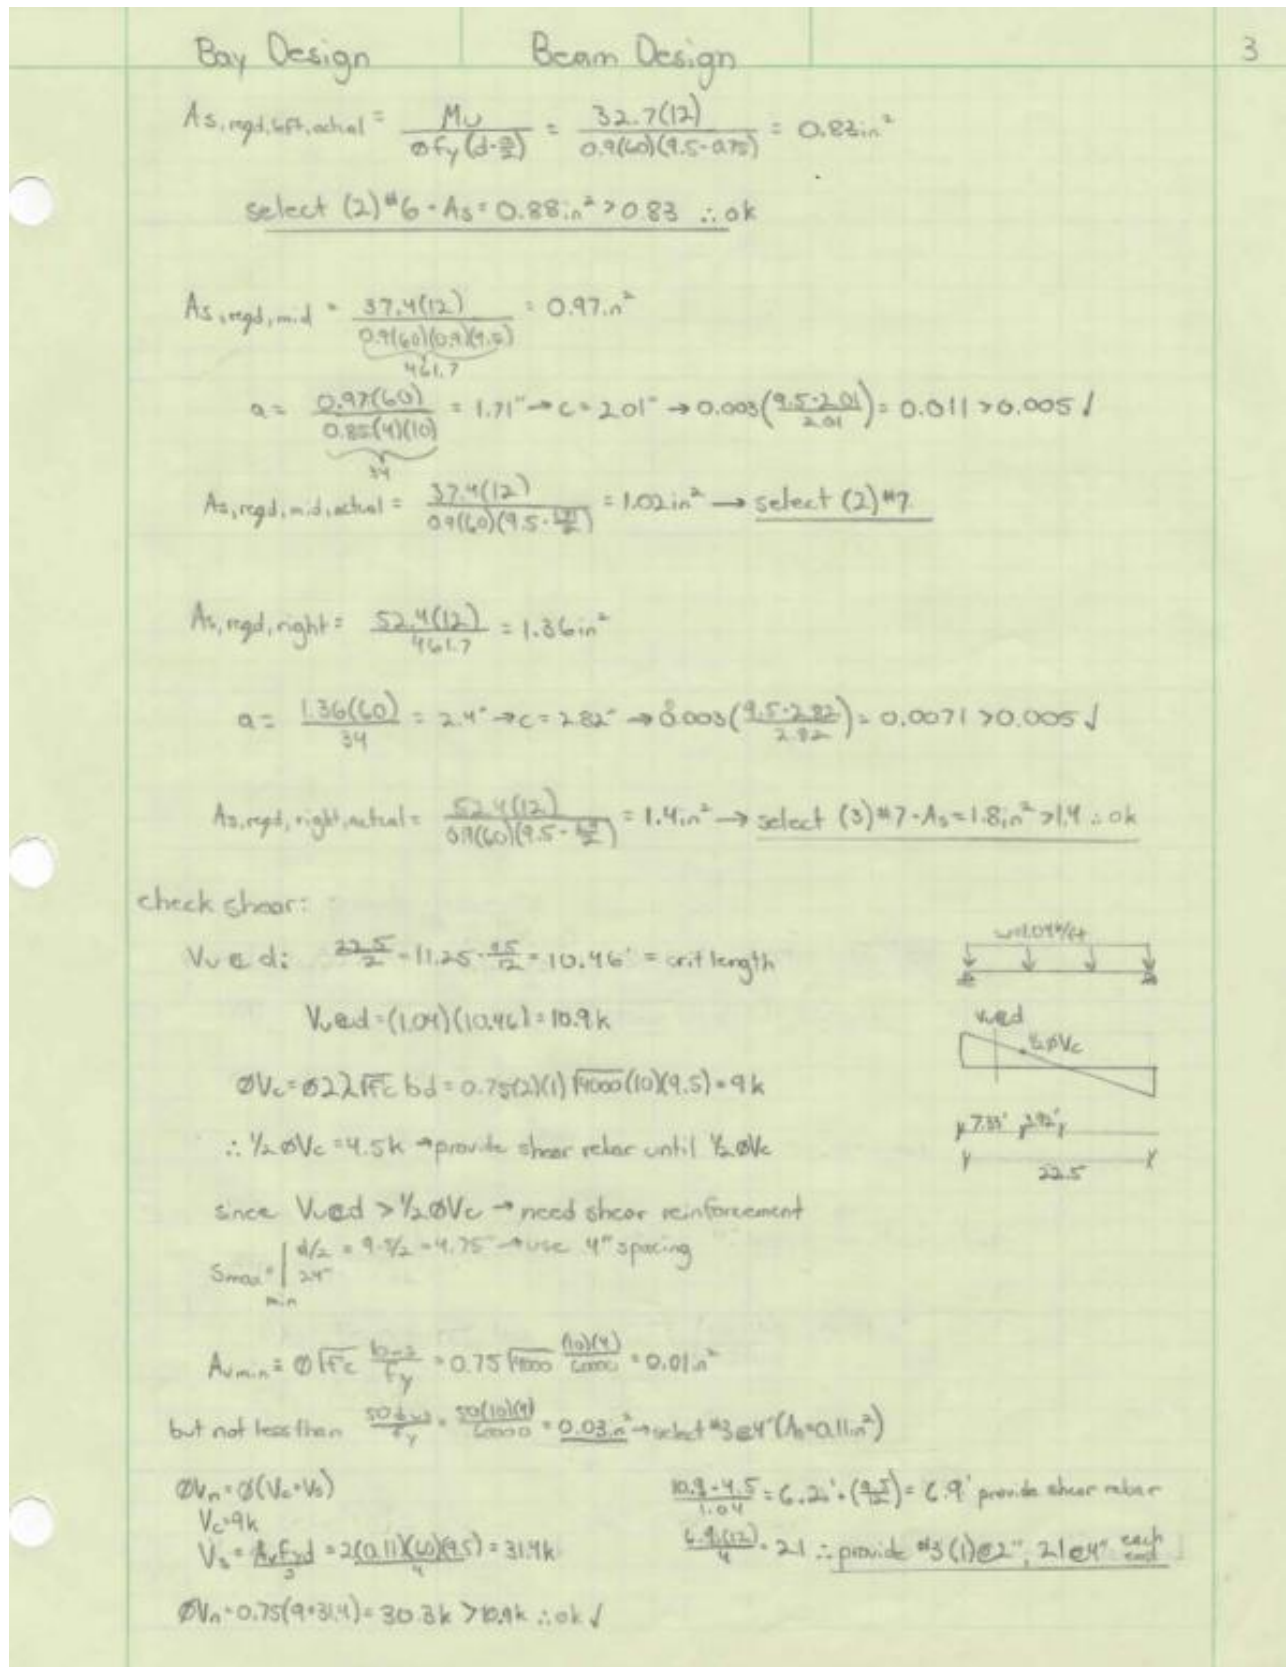 Bay Design Beam Design 3
As,reqd,left,actual = Mu / øfy(d-a/2) = 32.7(12) / 0.9(60)(9.5-0.75) = 0.83in²
select (2)#6 - As = 0.88in² > 0.83 ∴ ok
As,reqd,mid = 37.4(12) / 0.9(60)(0.9)(9.5) = 0.97in²
461.7
a = 0.97(60) / 0.85(4)(10) = 1.71" → c = 2.01" → 0.003(9.5-2.01 / 2.01) = 0.011 > 0.005 √
34
As,reqd,mid,actual = 37.4(12) / 0.9(60)(9.5-1.71/2) = 1.02in² → select (2)#7
As,reqd,right = 52.4(12) / 461.7 = 1.36in²
a = 1.36(60) / 34 = 2.4" → c = 2.82" → 0.003(9.5-2.82 / 2.82) = 0.0071 > 0.005 √
As,reqd,right,actual = 52.4(12) / 0.9(60)(9.5 - /2) = 1.4in² → select (3)#7 - As = 1.8in² > 1.4 ∴ ok
check shear:
Vu @ d: 22.5/2 = 11.25 - 9.5/12 = 10.46' = crit length
Vu@d = (1.04)(10.46) = 10.9k
øVc = ø2λ√f'c bd = 0.75(2)(1)√4000(10)(9.5) = 9k
∴ 1/2øVc = 4.5k → provide shear rebar until 1/2øVc
since Vu@d > 1/2øVc → need shear reinforcement
Smax = | d/2 = 9.5/2 = 4.75" → use 4" spacing
24"
min
w=1.04k/ft
Vu@d
1/2øVc
7.33' 3.92'
22.5
Avmin = ø√f'c bws / fy = 0.75√4000 (10)(4) / 60000 = 0.01in²
but not less than 50bws / fy = 50(10)(4) / 60000 = 0.03in² → select #3@4" (Ab=0.11in²)
øVn = ø(Vc+Vs)
Vc=9k
Vs = Avfyd / s = 2(0.11)(60)(9.5) / 4 = 31.4k
øVn = 0.75(9+31.4) = 30.3k > 10.9k ∴ ok √
10.9-4.5 / 1.04 = 6.2' + (9.5/12) = 6.9' provide shear rebar
6.9(12) / 4 = 21 ∴ provide #3 (1)@2", 21@4" each end